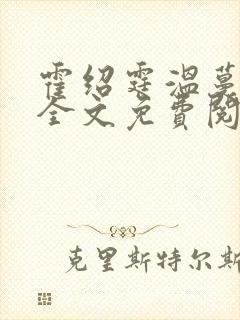 霍绍霆温蔓
全文免費閱
克里斯特尔斯